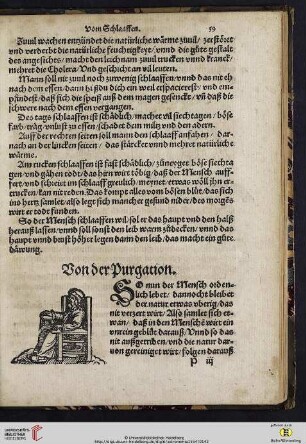 Vom Schlaaffen. 59
Zuuil wachen entzündet die natürliche wärme zuuil / zerstöret
vnd verderbt die natürliche feuchtigkeyt / vnnd die gůte gestalt
des angesichts / macht den leichnam zuuil trucken vnnd kranck /
mehret die Cholera. Vnd geschicht an vil leuten.
Mann soll nit zuuil noch zuwenig schlaaffen / vnnd das nit eh
nach dem essen / dann biß du dich ein weil erspacierest / vnd em-
pfindest / daß sich die speiß auß dem magen gesenckt / vñ daß die
schwere nach dem essen vergangen.
Des tags schlaaffen ist schädlich / macht vil siechtagen / böse
farb / träg / vnlust zu essen / schadet dem miltz vnd den adern.
Auff der rechten seiten soll mann den schlaaff anfahen / dar-
nach an der lincken seiten / das stärcket vnnd mehret natürliche
wärme.
Am rucken schlaaffen ist fast schädlich / böse siechta
gen vnd gähen todt / das hirn wirt töbig / daß der Mensch auff-
fert / vnd schreit im schlaaff greulich / meynet etwas wöll jhn er-
trucken / kan nit reden. Das kompt alles vom bösen blůt / das sich
vns hertz samlet / also legt sich mancher gesund nider / des morgēs
wirt er todt funden.
So der Mensch schlaaffen wil / sol er das haupt vnd den halß
herauß lassen / vnnd soll sonst den leib warm zůdecken / vnnd das
haupt vnnd brust höher legen dann den leib / das macht ein gůte
däwung.
Von der Purgation.
SO nun der Mensch orden-
lich lebet / dannocht bleibt in
der natur etwas vberig / das
nit verzert wirt / Also samlet sich et-
wan / daß in den Menschē wirt ein
vnrein geblüt darauß. Vnnd so das
nit außgetriben / vnd die natur dar-
von gereiniget wirt / folgen darauß
P iij
© Universitätsbibliothek Heidelberg